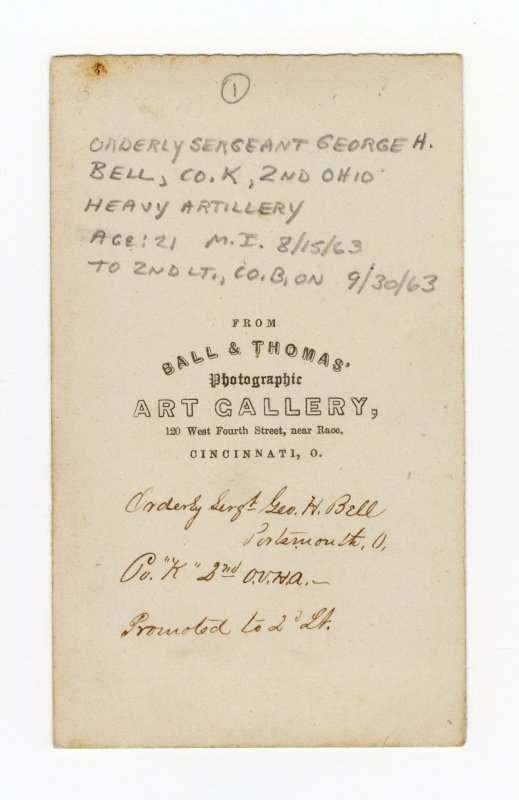 1
ORDERLY SERGEANT GEORGE H.
BELL, CO. K, 2ND OHIO
HEAVY ARTILLERY
AGE: 21 M.I. 8/15/63
TO 2ND LT., CO. B, ON 9/30/63
FROM
BALL & THOMAS'
Photographic
ART GALLERY,
120 West Fourth Street, near Race,
CINCINNATI, O.
Orderly Sergt Geo. H. Bell
Portsmouth, O,
Co. "K" 2nd O.V.H.A. –
Promoted to 2d Lt.